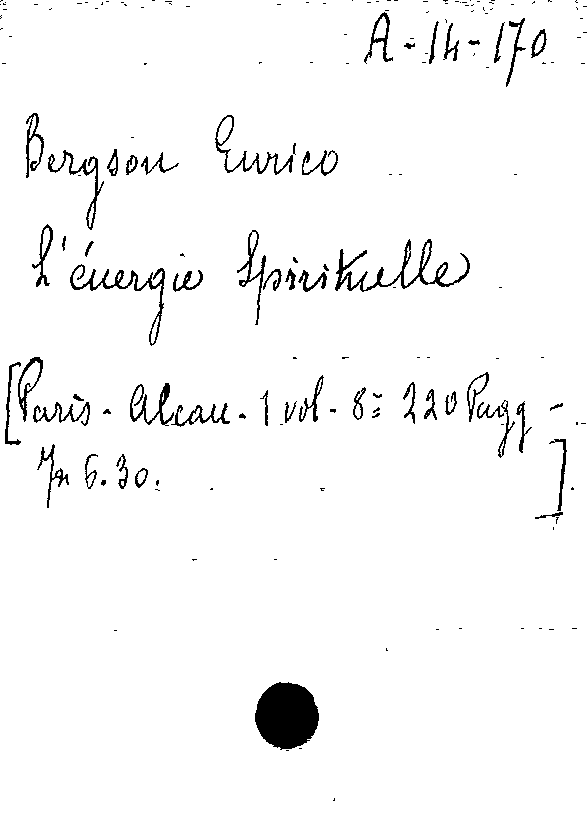 A-14-170
Bergson Enrico
L'énergie Spirituelle
[Paris - Alcan - 1 vol - 8= 220 Pagg -
Fr 6.30.]